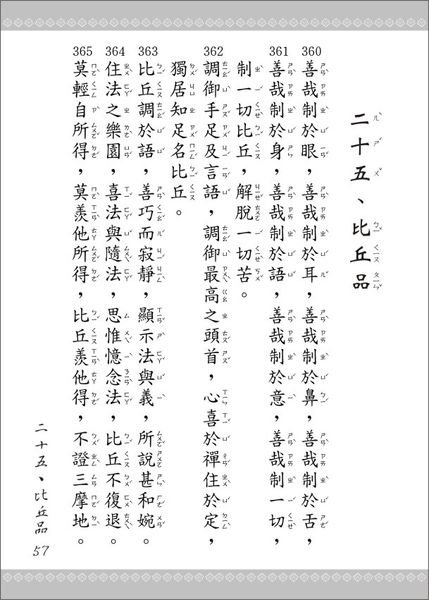 二十五、比丘品
360 善哉制於眼，善哉制於耳，善哉制於鼻，善哉制於舌，
361 善哉制於身，善哉制於語，善哉制於意，善哉制一切，
制一切比丘，解脫一切苦。
362 調御手足及言語，調御最高之頭首，心喜於禪住於定，
獨居知足名比丘。
363 比丘調於語，善巧而寂靜，顯示法與義，所說甚和婉。
364 住法之樂園，喜法與隨法，思惟憶念法，比丘不復退。
365 莫輕自所得，莫羨他所得，比丘羨他得，不證三摩地。
二十五、比丘品
57